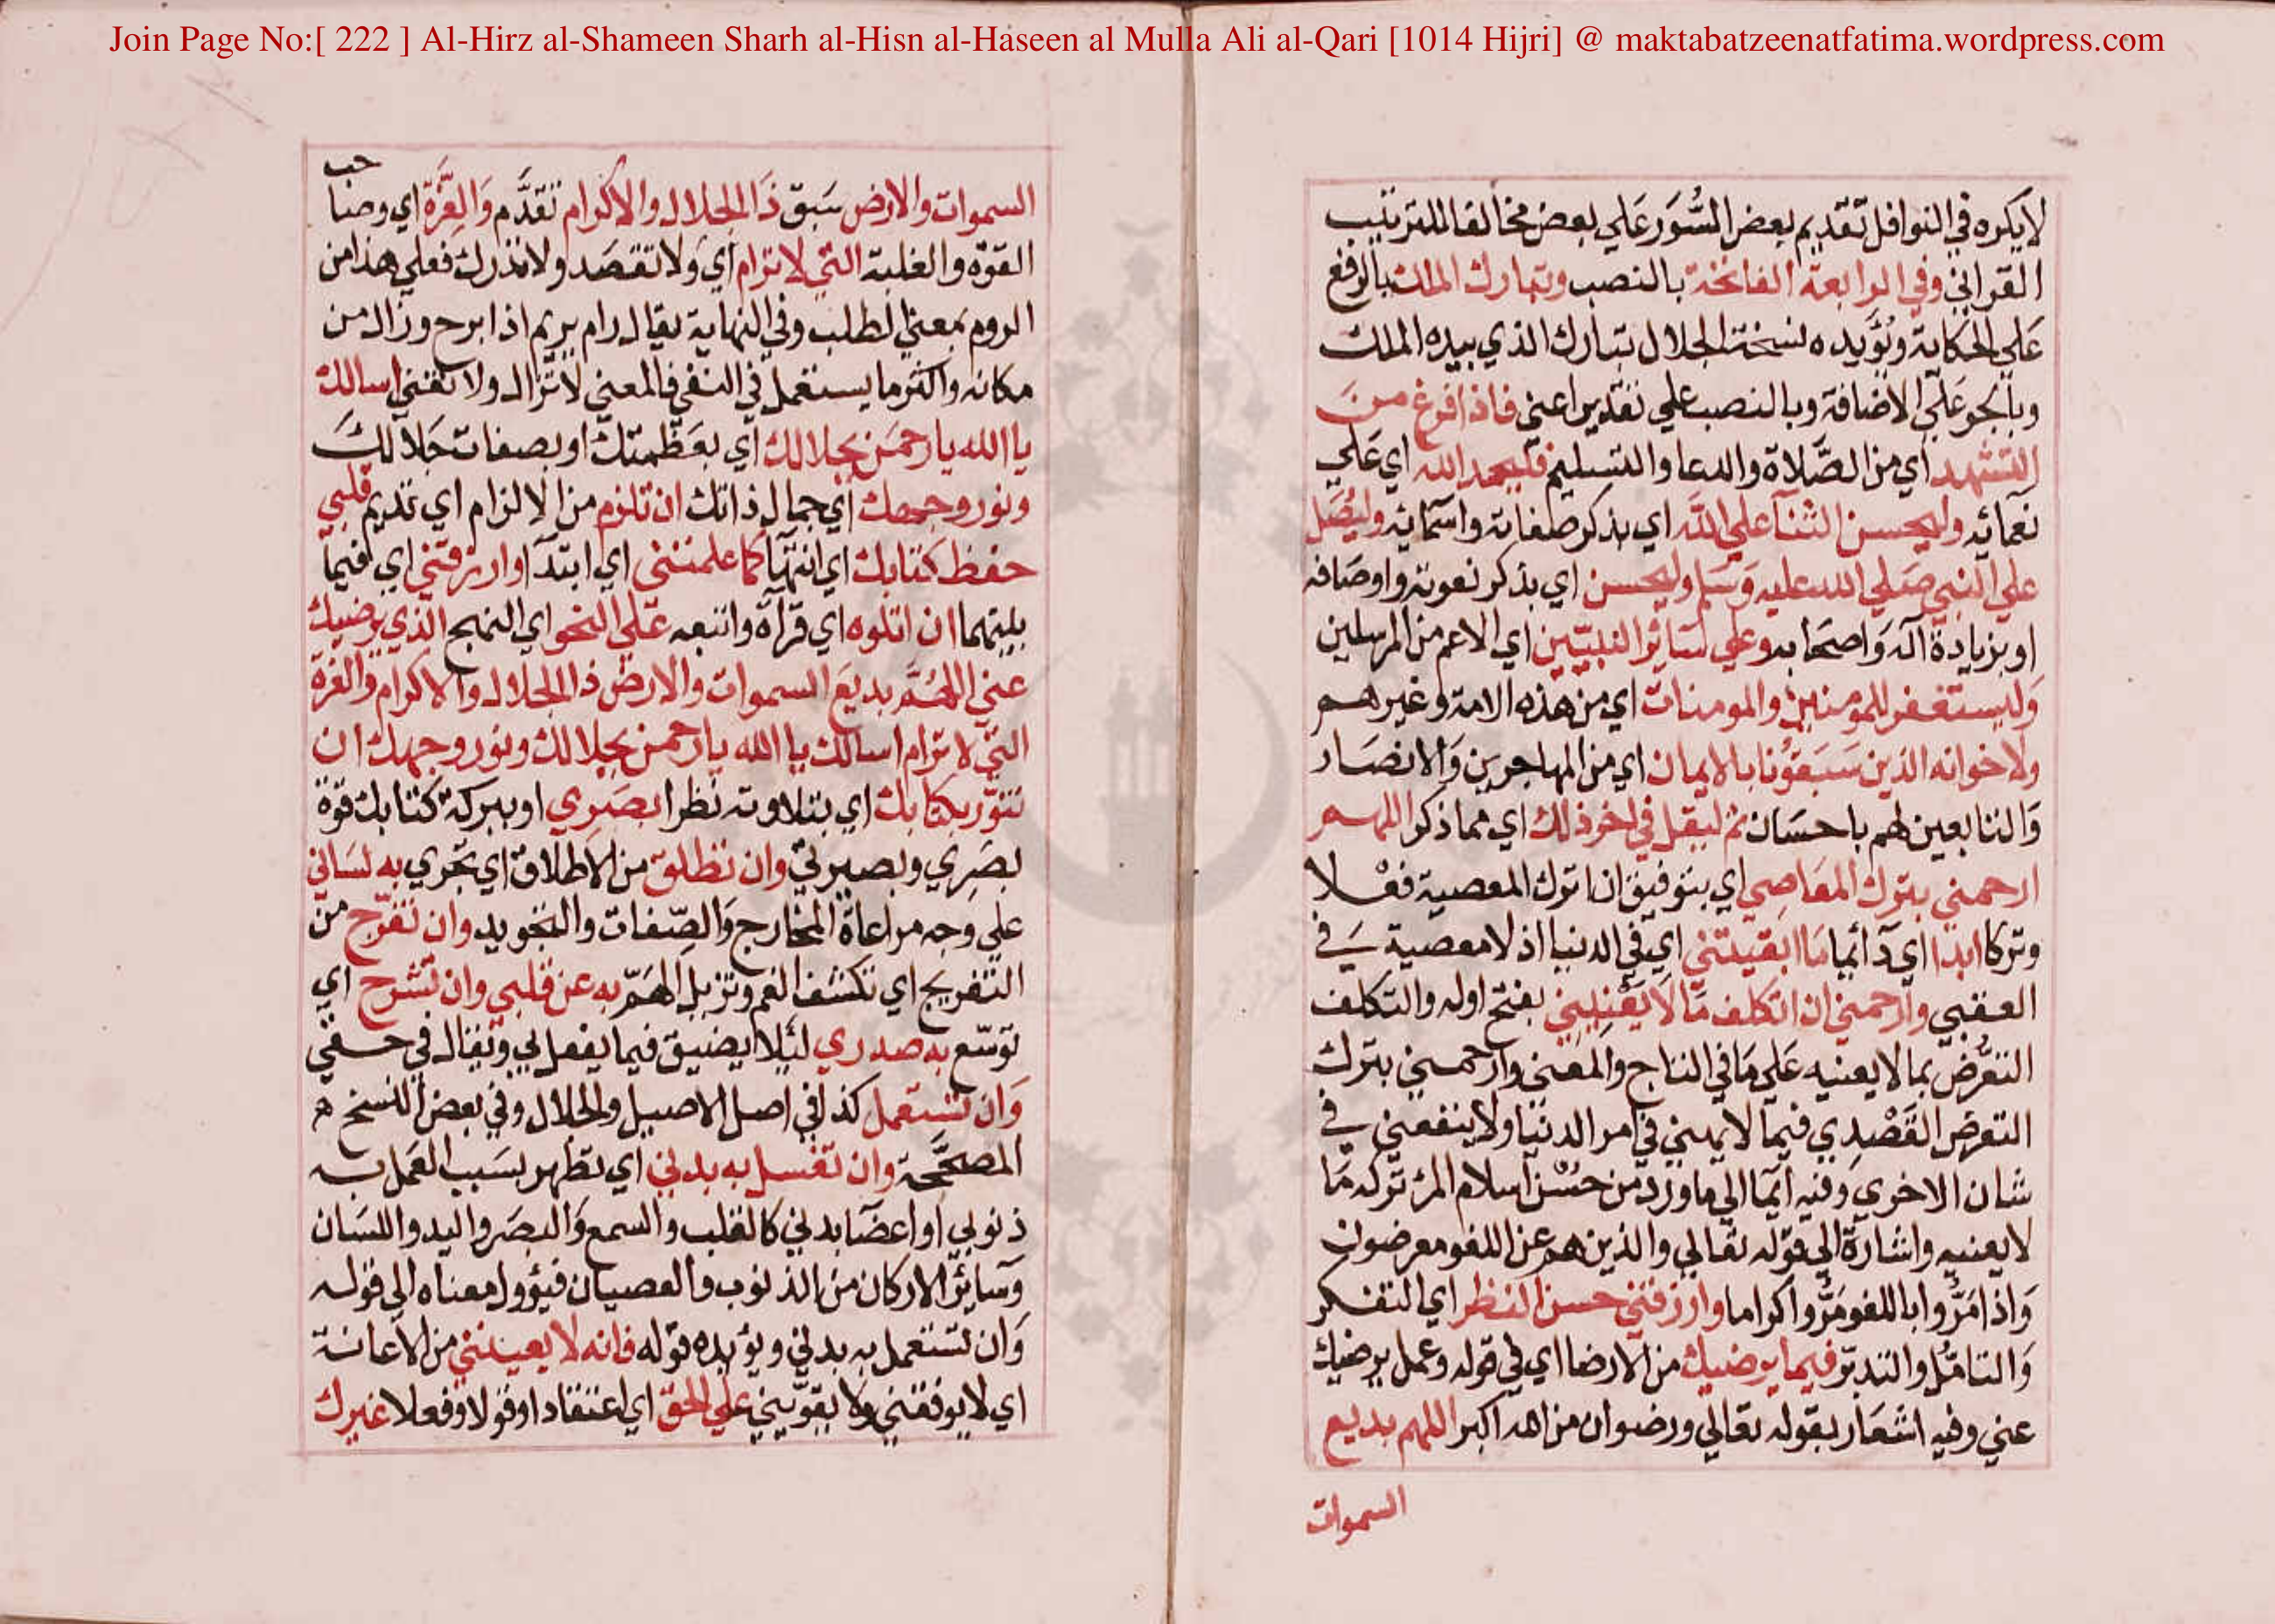 Join Page No:[ 222 ] Al-Hirz al-Shameen Sharh al-Hisn al-Haseen al Mulla Ali al-Qari [1014 Hijri] @ maktabatzeenatfatima.wordpress.com
لا يكره في النوافل تقديم بعض السُّوَر عَلي بعض مخالفا للترتيب
القراني وفي الرابعة الفاتحة بالنصب وتبارك الملك بالرفع
عَلي الحكاية ويُؤيده نسخة الجلال تبارك الذي بيده الملك
وبالجر عَلي الاضافة وبالنصب علي تقدير اعني فاذا فرغ من
التشهد اي من الصَّلاة والدعا والتسليم فليحمد الله اي عَلي
نعمائه وليحسن الثنآ علي الله اي بذكر صفاته واسمائه وليُصَل
علي النبي صَلي الله عليه وَسَلم وليحسن اي بذكر نعوته واوصَافه
او بزيادة آله وَاصحَابه وعلي سَائر النبيّين اي الاعم من المرسلين
وَليستغفر للمومنين والمومنات اي من هذه الامة وغيرهم
ولاخوانه الذين سَبَقوُنا بالايمان اي من المهاجرين وَالانصَار
وَالتابعين لهم باحسَان ثم ليقل في اخر ذلك اي مما ذكر اللهم
ارحمني بترك المعَاصِي اي بتوفيق ان اترك المعصية فعْلا
وتركا ابدا اي دَآئما مَا ابقيتني اي في الدنيا اذ لا معصية في
العقبي وارحمني ان اتكلف مَا لا يَعْنِيني بفتح اوله والتكلف
التعرُّض بما لا يعنيه عَلي مَا في التاج والمعني وارحمني بترك
التعرض القَصْدِي فيما لا يهمني في امر الدنيا ولا ينفعني في
شان الاخري وفيه ايمَا الي ما ورد من حُسْن اسلام المرْ تركه مَا
لا يعنيه واشارة الي قوله تعَالي والذين هم عن اللغو معرضون
وَاذا مَرُّوا باللغو مَرُّوا كراما وارزقني حسن النظر اي التفكر
وَالتامُّل والتدبر فيما يرضيك من الارضا اي في قوله وعمل يرضيك
عني وفيه اشعَار بقوله تعَالي ورضوان من الله اكبر اللهم بديع
السموات
حب
السموات والارض سَبق ذَا الجلال والاكرام تقدَّم وَالعِزَّة اي وصَا
القوّة والغلبة التي لا ترام اي وَلا تقصَد ولا تدرك فعلي هذا من
الروم بمعني الطلب وفي النهاية يقال رام يريم اذا برح وزال من
مكانه واكثر ما يستعمل في النفي فالمعني لا تزال ولا تفني اسالك
يا الله يا رحمَن بجلالك اي بعَظمتك او بصفات جَلالكَ
ونور وجهك اي جمال ذاتك ان تلزم من الالزام اي تديم قلبي
حفظ كتابك اي انتهآ كما علمتني اي ابتدآ وارزقني اي فيما
بينهما ان اتلوه اي قرآه واتبعه عَلي النحو اي النهج الذي يرضيك
عني اللهُمَّ بديعَ السموات والارض ذا الجلال والاكرام والعزة
التي لا ترام اسالك يا الله يا رحمن بجلالك ونور وجهك ان
تنوّر بكتابك اي بتلاوته نظرا بصَرِي او ببركة كتابك قوّة
بصَرِي وبصيرتي وان تطلق من الاطلاق اي تجري به لسَاني
علي وجه مراعاة المخارج وَالصِّفات والتجويد وان تفرّج من
التفريج اي تكشف الغم وتزيل الهَمّ به عن قلبي وان تشرح اي
توسّع به صدري لئلا يضيق فيما يفعل بي ويقال في حقي
وَان تستعمل كذا في اصل الاصيل والجلال وفي بعض النسخ
المصحَّحة وان تغسل به بدني اي تطهر بسَبب العَمل به
ذنوبي او اعضَا بدني كالقلب والسمع وَالبصَر واليد واللسَان
وَسايُر الاركان من الذنوب والعصيان فيؤول معناه الي قوله
وَان تستعمل به بدني ويؤيده قوله فانه لا يعينني من الاعانة
اي لا يوفقني ولا يقوّيني علي الحق اي اعتقادا وقولا وفعلا غيرك